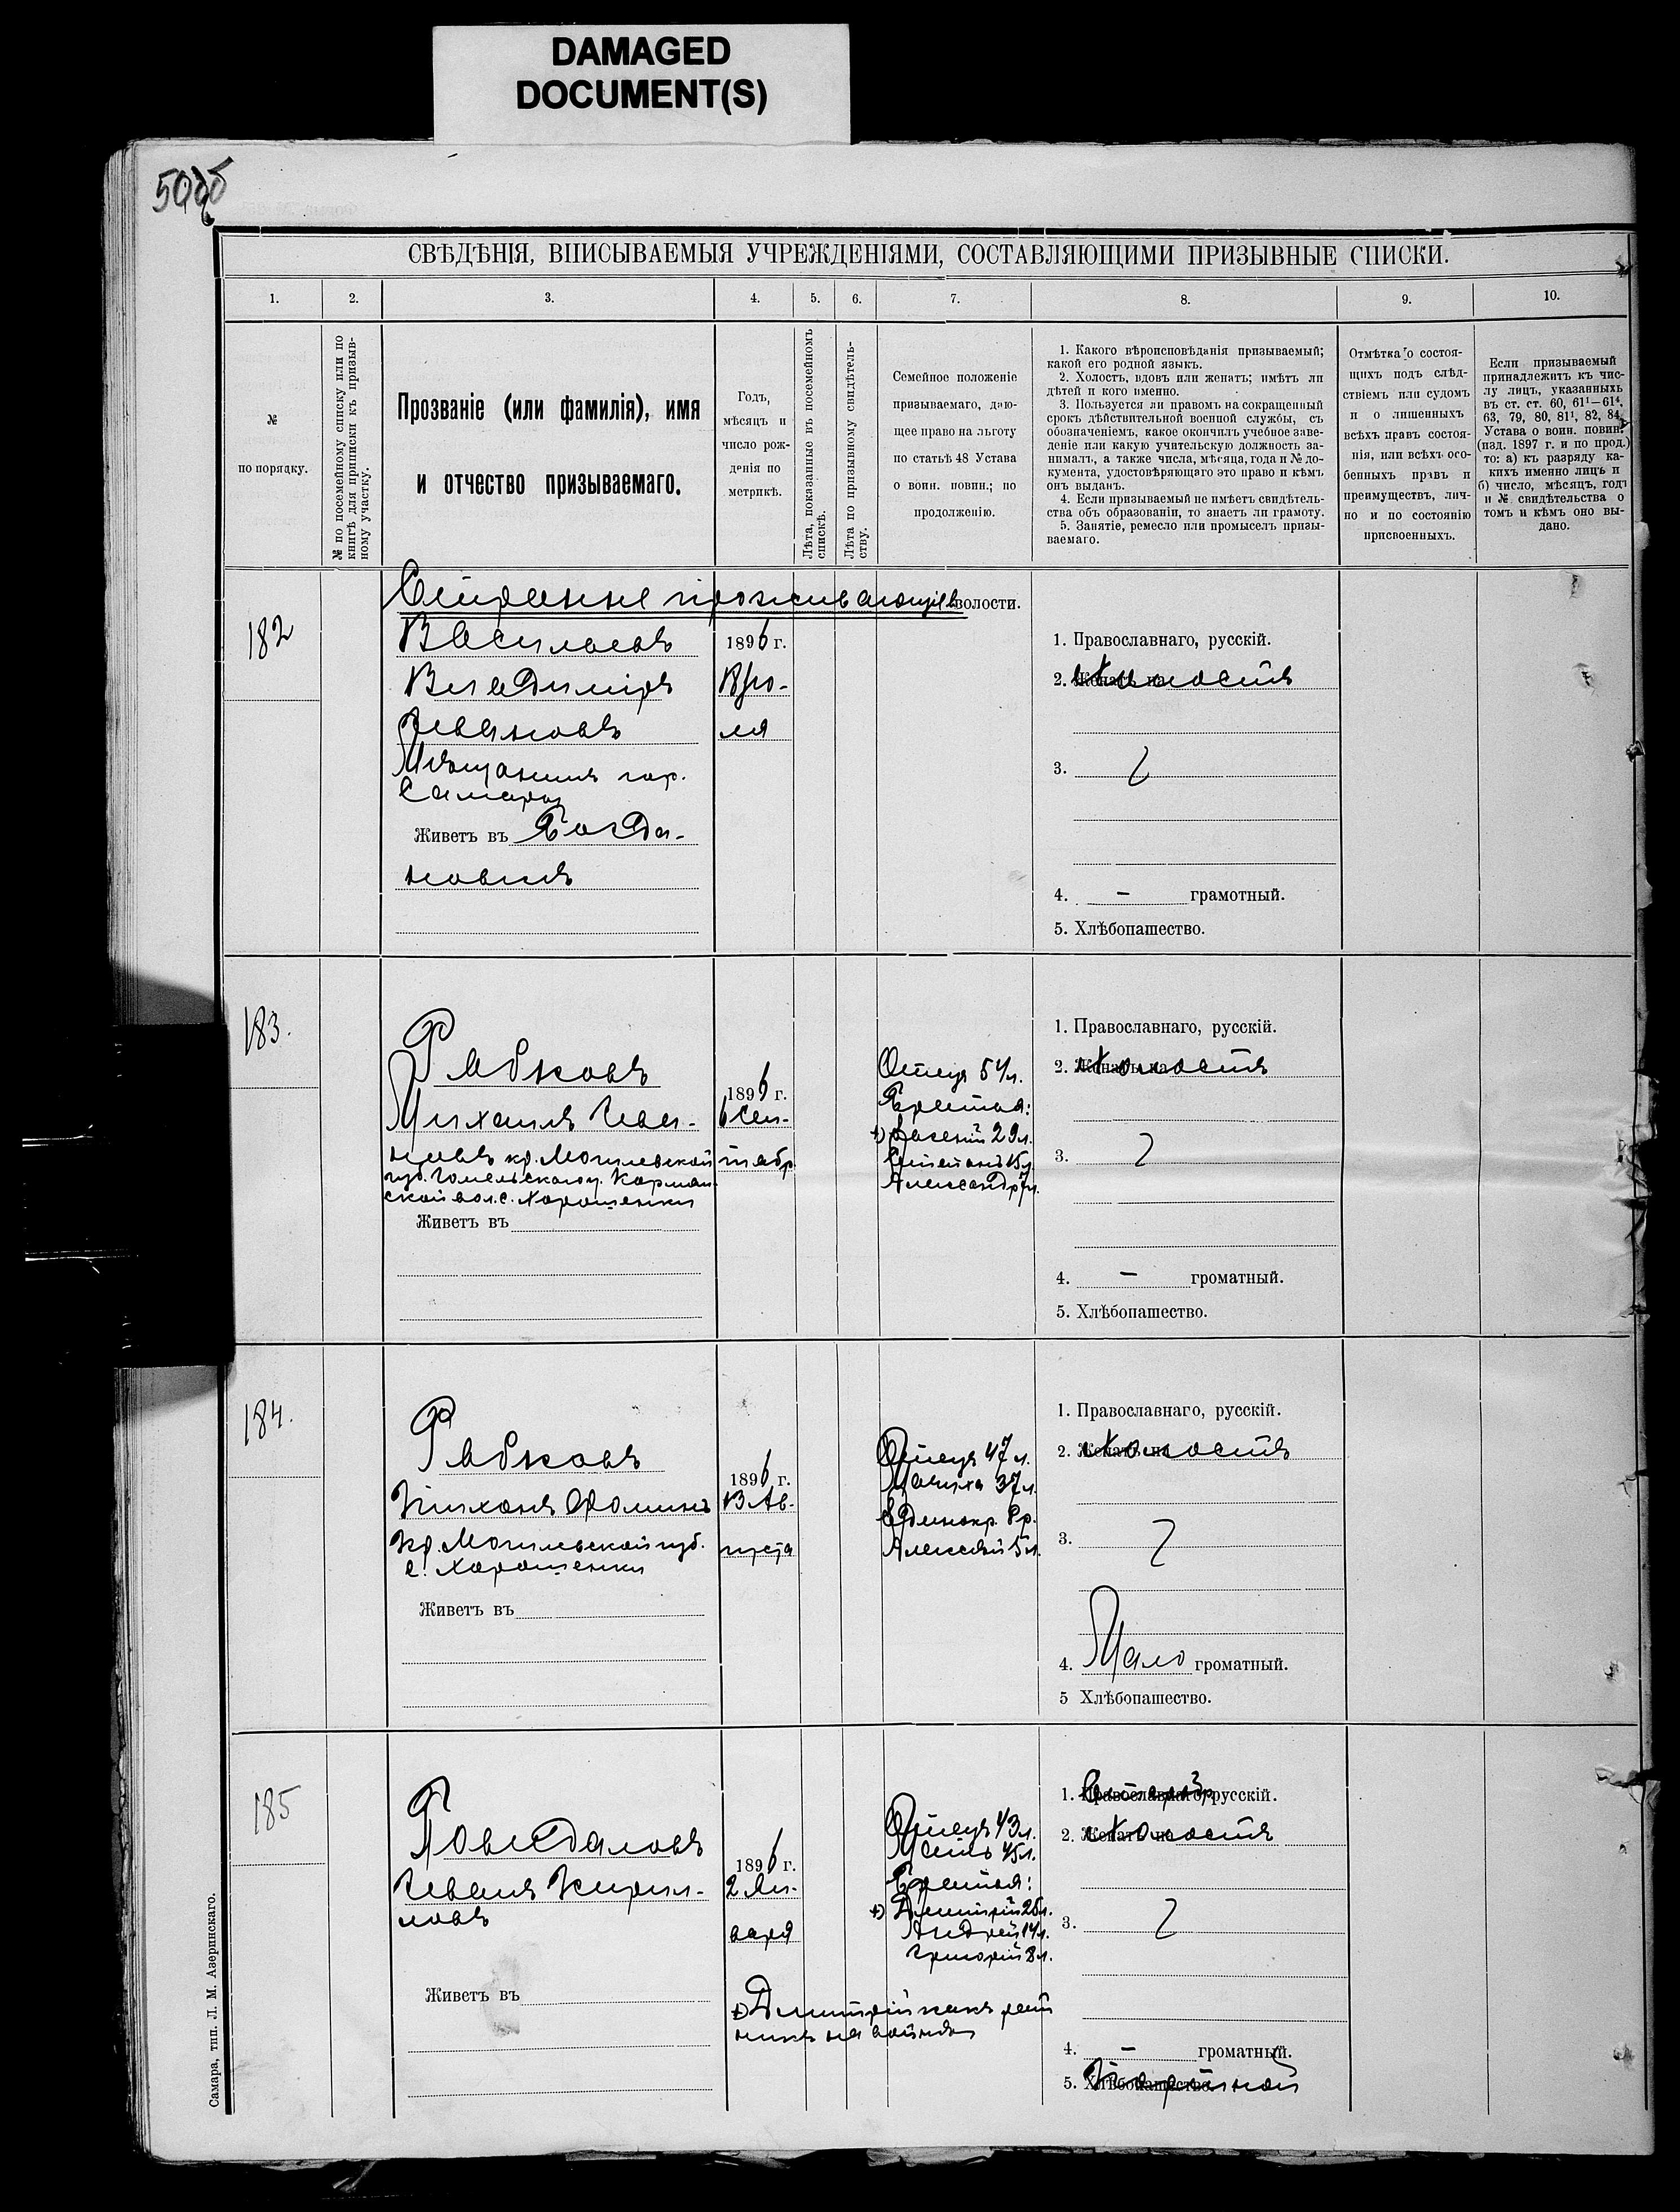 DAMAGED
DOCUMENT(S)
СВѢДѢНІЯ, ВПИСЫВАЕМЫЯ УЧРЕЖДЕНІЯМИ, СОСТАВЛЯЮЩИМИ ПРИЗЫВНЫЕ СПИСКИ.
1.
2.
3.
4.
5.
6.
7.
8.
9.
10.
№
по порядку.
№ по посемейному списку или по
книгѣ для приписки къ призыв-
ному участку.
Прозваніе (или фамилія), имя
и отчество призываемаго.
Годъ,
мѣсяцъ и
число рож-
денія по
метрикѣ.
Лѣта, показанные въ посемейномъ
спискѣ.
Лѣта по призывному свидѣтель-
ству.
Семейное положеніе
призываемаго, даю-
щее право на льготу
по статьѣ 48 Устава
о воин. повин.; по
продолженію.
1. Какого вѣроисповѣданія призываемый;
какой его родной языкъ.
2. Холостъ, вдовъ или женатъ; имѣтъ ли
дѣтей и кого именно.
3. Пользуется ли правомъ на сокращенный
срокъ дѣйствительной военной службы, съ
обозначеніемъ, какое окончилъ учебное заве-
деніе или какую учительскую должность за-
нималъ, а также числа, мѣсяца, года и № до-
кумента, удостовѣряющаго это право и кѣмъ
онъ выданъ.
4. Если призываемый не имѣетъ свидѣтель-
ства объ образованіи, то знаетъ ли грамоту.
5. Занятіе, ремесло или промыселъ призы-
ваемаго.
Отмѣтка о состоя-
щихъ подъ слѣд-
ствіемъ или судомъ
и о лишенныхъ
всѣхъ правъ состоя-
нія, или всѣхъ осо-
бенныхъ правъ и
преимуществъ, лич-
но и по состоянію
присвоенныхъ.
Если призываемый
принадлежитъ къ чис-
лу лицъ, указанныхъ
въ ст. ст. 60, 61¹—61⁴,
63, 79, 80, 81¹, 82, 84
Устава о воин. повин.
(изд. 1897 г. и по прод.)
то: а) къ разряду ка-
кихъ именно лицъ и
б) число, мѣсяцъ, годъ
и № свидѣтельства о
томъ и кѣмъ оно вы-
дано.
проживающіе волости.
182
Васильевъ
Владиміръ
Ивановъ
Мѣщанинъ гор.
Самары
Живетъ въ Богда-
новкѣ
1896 г.
ля
1. Православнаго, русскій.
2. холостъ
3.
4. — грамотный.
5. Хлѣбопашество.
183.
Рабковъ
Михаилъ Ива-
новъ кр. Могилевской
губ. Гомельскаго у. Корман-
ской вол. с. Хорошевки
Живетъ въ
1896 г.
6 Сен-
тябр
Отецъ 54 л.
Братья:
Василій 29 л.
Степанъ 15 л.
Александр 7 л.
1. Православнаго, русскій.
2. холостъ
3.
4. — громатный.
5. Хлѣбопашество.
184.
Рабковъ
Тихонъ Фоминъ
кр. Могилевской губ.
с. Хорошевки
Живетъ въ
1896 г.
13 Ав-
густа
Отецъ 47 л.
Мачиха 37 л.
Единокр. бр.
Алексѣй 5 л.
1. Православнаго, русскій.
2. холостъ
3.
4. Мало громатный.
5 Хлѣбопашество.
185
Иванъ Кирил-
ловъ
Живетъ въ
1896 г.
2 Ян-
варя
Отецъ 43 л.
Мать 45 л.
Братья:
Дмитрій 26 л.
Андрей 14 л.
Григорій 8 л.
Дмитрій какъ рат
никъ на войнѣ
1. русскій.
2. холостъ
3.
4. — громатный.
5. Портной
Самара, тип. Л. М. Азеринскаго.